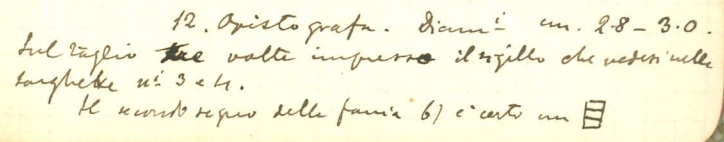 12. Opistografa. Diam.i cm. 2.8 – 3.0.
Sul taglio tre volte impresso il sigillo che vedesi nelle
targhette ni 3 e 4.
Il secondo segno della faccia b) è certo un